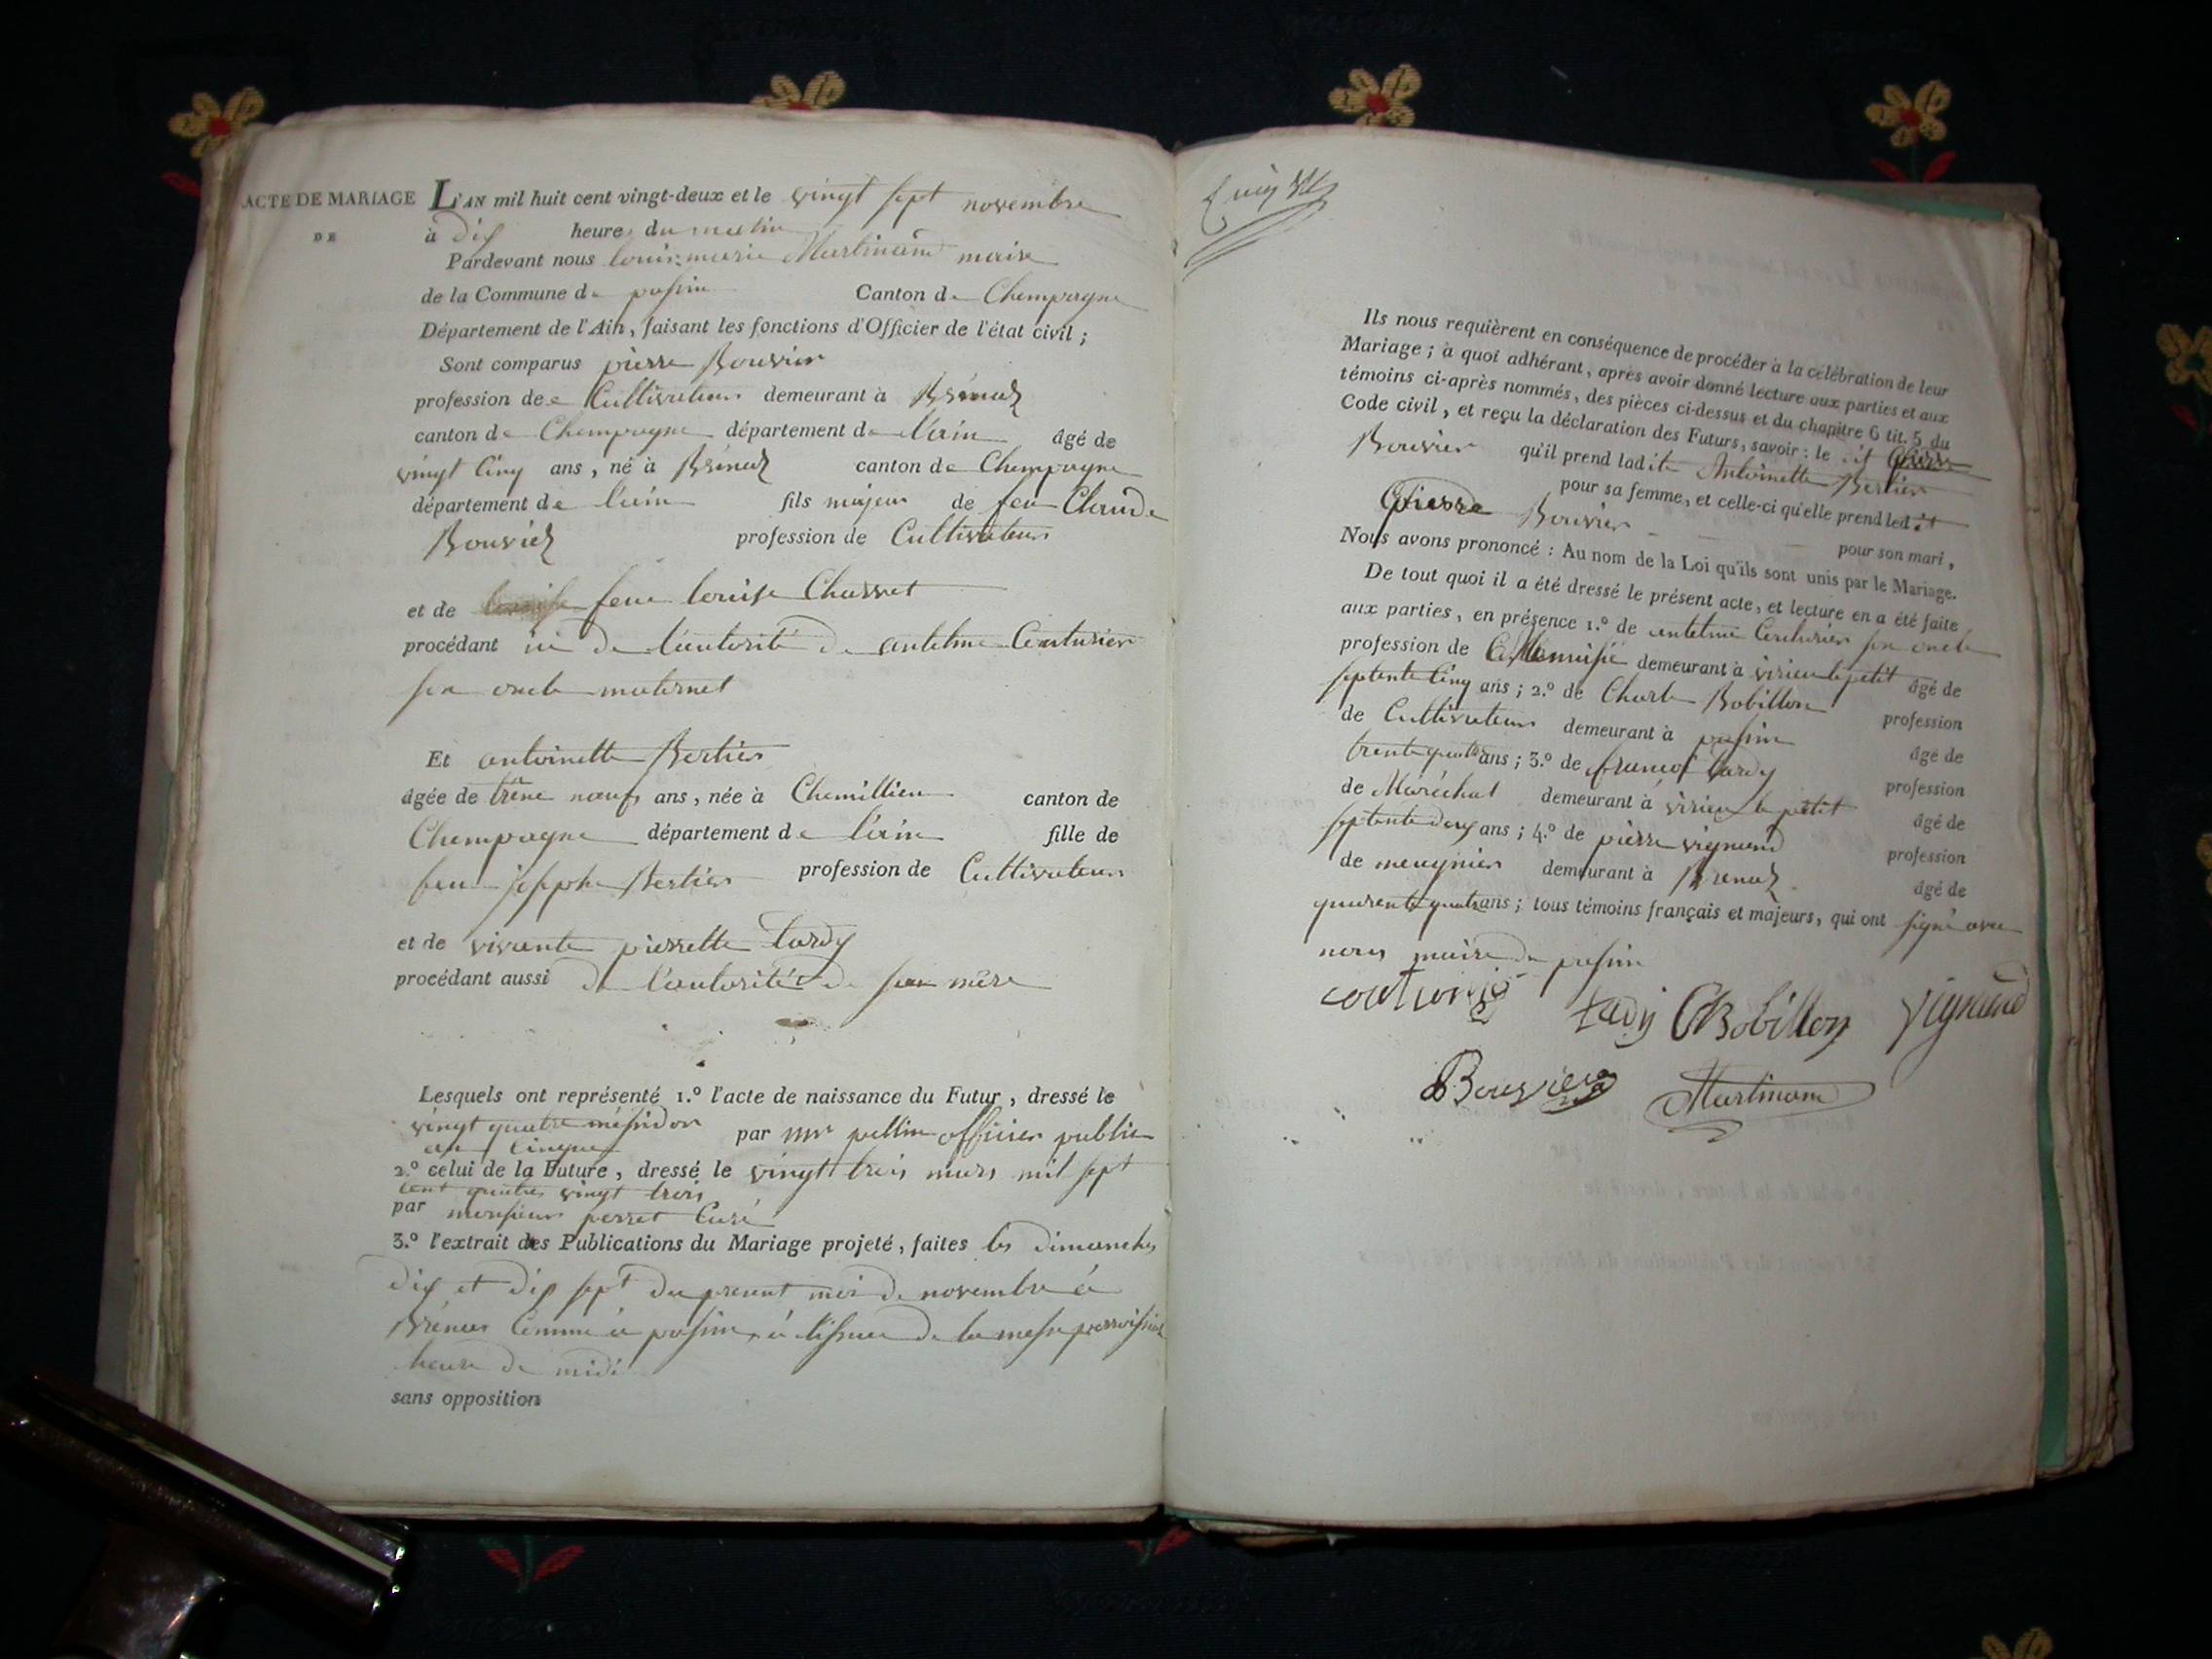 ACTE DE MARIAGE
DE
L'AN mil huit cent vingt-deux et le vingt sept novembre
à dix heures du matin
Pardevant nous louis marie Martinand maire
de la Commune de passin Canton de Champagne
Département de l'Ain, faisant les fonctions d'Officier de l'état civil ;
Sont comparus pierre Bouvier
profession de Cultivateur demeurant à Brénaz
canton de Champagne département de l'ain âgé de
vingt Cinq ans, né à Brénaz canton de Champagne
département de l'ain fils majeur de feu Claude
Bouvier profession de Cultivateur
et de feue louise Charvet
procédant ici de l'autorité de antelme Couturier
son oncle maternel
Et antoinette Bertier
âgée de trene neuf ans, née à Chemillieu canton de
Champagne département de l'ain fille de
feu joseph Bertier profession de Cultivateur
et de vivante pierrette tardy
procédant aussi de l'autorité de sa mère
Lesquels ont représenté 1.º l'acte de naissance du Futur, dressé le
vingt quatre mésidor
an Cinque par mr pellin officier public
2.º celui de la Future, dressé le vingt trois mars mil sept
cent quatre vingt trois
par monsieur perret Curé
3.º l'extrait des Publications du Mariage projeté, faites les dimanches
dix et dix sept du present mois de novembre à
Brénaz Comme à passin, à l'issue de la messe
heure de midi
sans opposition
Ils nous requièrent en conséquence de procéder à la célébration de leur
Mariage ; à quoi adhérant, après avoir donné lecture aux parties et aux
témoins ci-après nommés, des pièces ci-dessus et du chapitre 6 tit. 5 du
Code civil, et reçu la déclaration des Futurs, savoir : le dit pierre
Bouvier qu'il prend ladite Antoinette Bertier
pour sa femme, et celle-ci qu'elle prend ledit
pierre Bouvier pour son mari,
Nous avons prononcé : Au nom de la Loi qu'ils sont unis par le Mariage.
De tout quoi il a été dressé le présent acte, et lecture en a été faite
aux parties, en présence 1.º de antelme Couturier son oncle
profession de demeurant à virieu le petit âgé de
septente Cinq ans ; 2.º de Charle Bobillon profession
de Cultivateur demeurant à passin âgé de
trente quatre ans ; 3.º de françois tardy profession
de Maréchal demeurant à virieu le petit âgé de
septente deux ans ; 4.º de pierre vignand profession
de meugnier demeurant à Brenaz âgé de
quarente quatre ans ; tous témoins français et majeurs, qui ont signé avec
nous maire de passin
couturier tardy CBobillon vignand
Bouvier Martinand